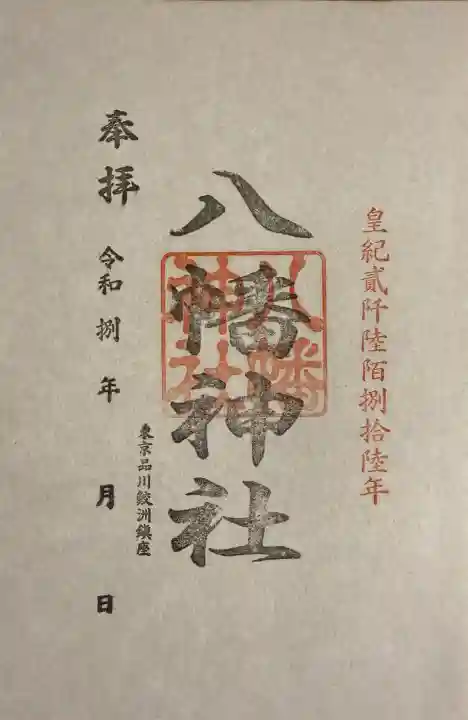 皇紀貳阡陸陌捌拾陸年
八幡神社
八幡神社
東京品川鮫洲鎮座
奉拝 令和捌年 月 日